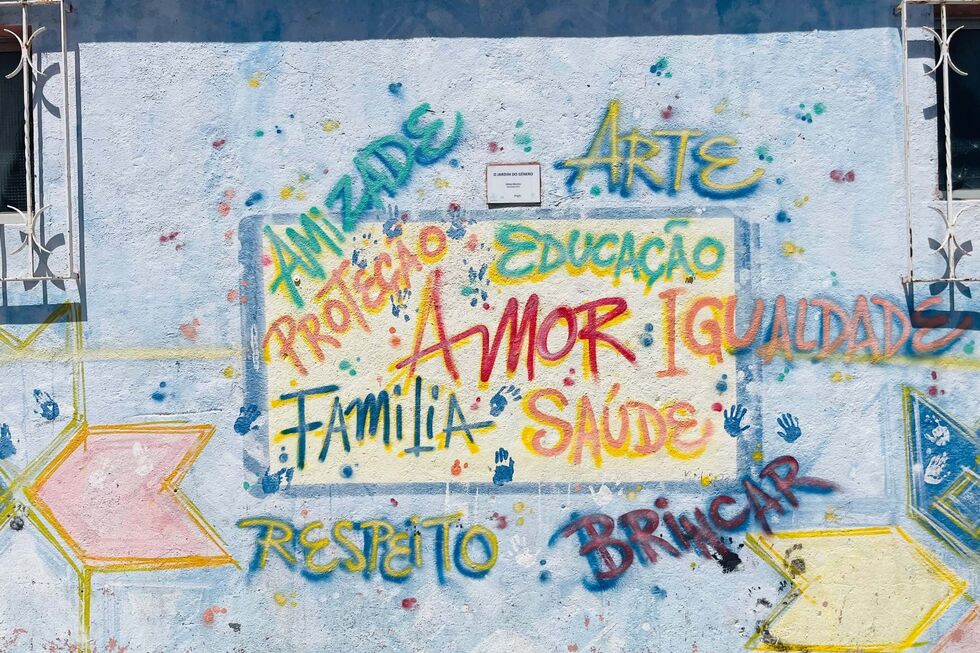 AMIZADE
ARTE
O JARDIM DO GÊNERO
PROTEÇÃO
EDUCAÇÃO
AMOR
IGUALDADE
FAMÍLIA
SAÚDE
RESPEITO
BRINCAR